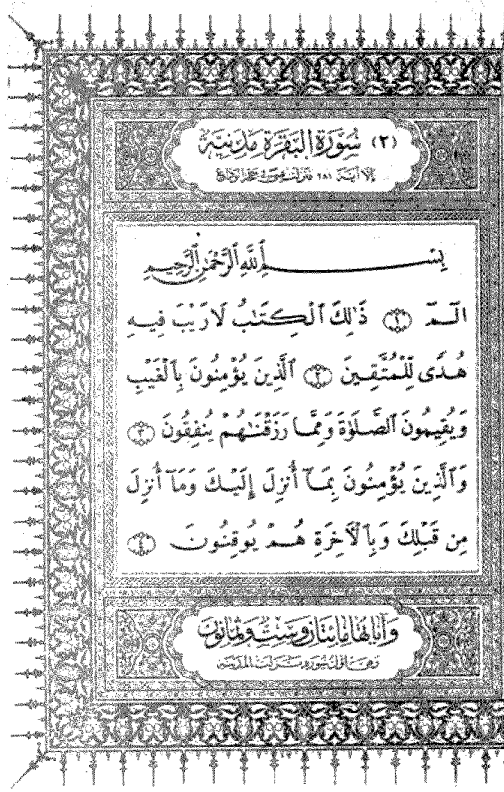 (٢) سُورَةُ البَقَرَةِ مَدَنِيَّة
إلا آية ٢٨١ فنزلت
بِسْمِ اللَّهِ الرَّحْمَٰنِ الرَّحِيمِ
الٓمٓ ۝١ ذَٰلِكَ ٱلْكِتَٰبُ لَا رَيْبَ فِيهِ
هُدًى لِّلْمُتَّقِينَ ۝٢ ٱلَّذِينَ يُؤْمِنُونَ بِٱلْغَيْبِ
وَيُقِيمُونَ ٱلصَّلَوٰةَ وَمِمَّا رَزَقْنَٰهُمْ يُنفِقُونَ ۝٣
وَٱلَّذِينَ يُؤْمِنُونَ بِمَآ أُنزِلَ إِلَيْكَ وَمَآ أُنزِلَ
مِن قَبْلِكَ وَبِٱلْأَخِرَةِ هُمْ يُوقِنُونَ ۝٤
وآياتها مائتان وست وثمانون
وهي أول سورة نزلت بالمدينة